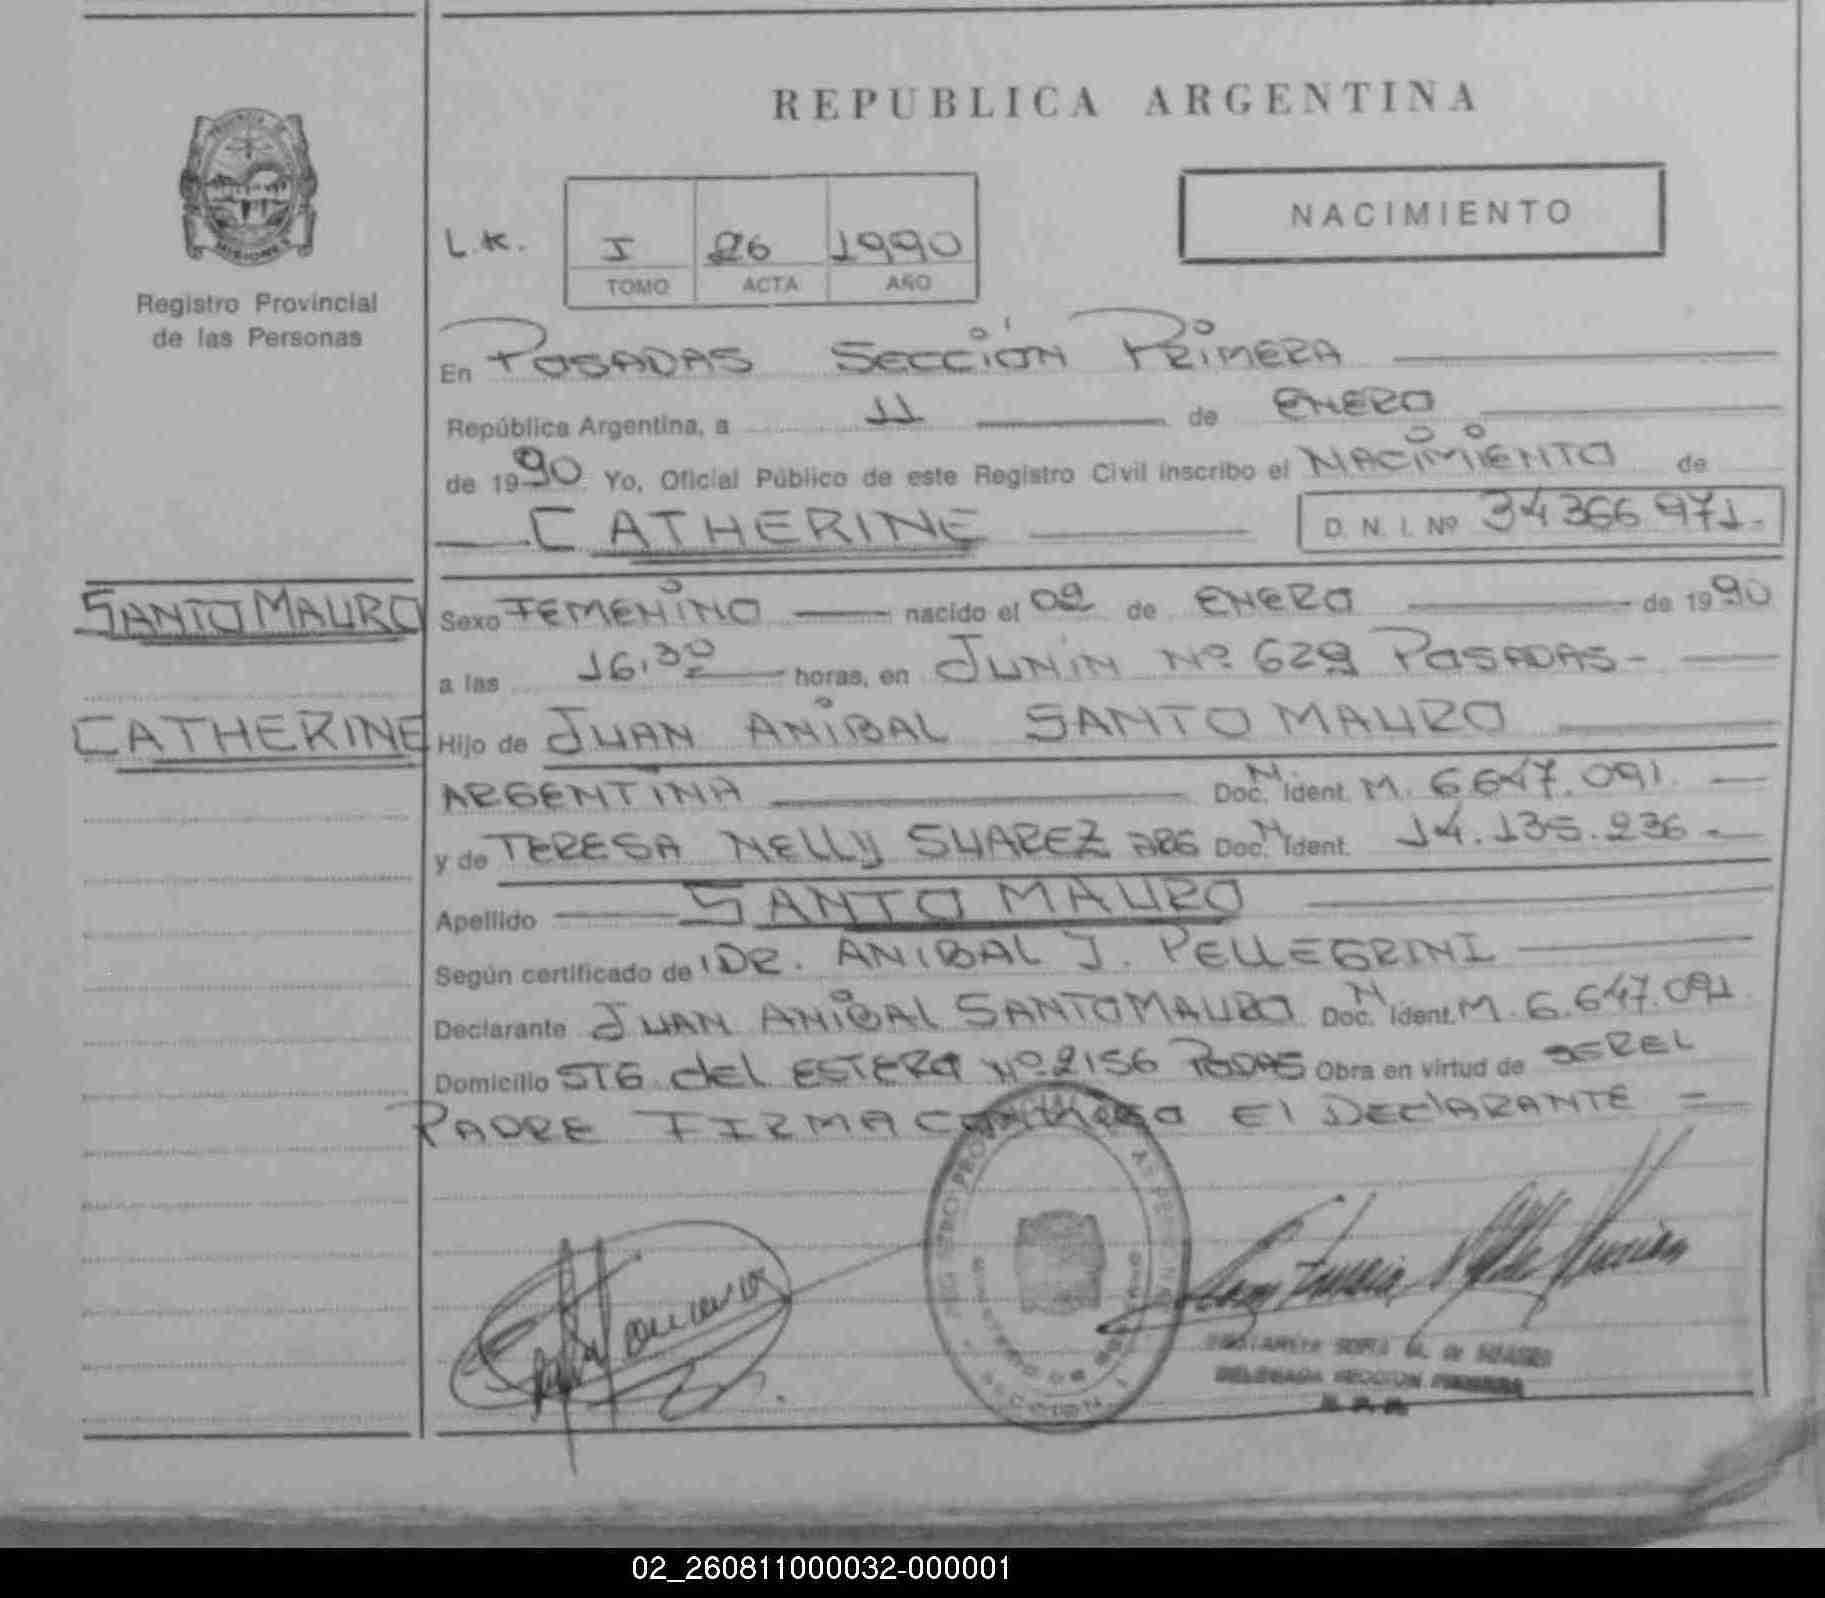 REPUBLICA ARGENTINA
NACIMIENTO
L.K. I 26 1990
TOMO ACTA AÑO
Registro Provincial
de las Personas
En POSADAS SECCIÓN PRIMERA
República Argentina, a 11 de ENERO
de 1990 Yo, Oficial Público de este Registro Civil inscribo el NACIMIENTO de
CATHERINE D. N. I. Nº 34366971.
SANTO MAURO
CATHERINE
Sexo FEMENINO nacido el 02 de ENERO de 1990
a las 16,30 horas, en JUNIN Nº 629 POSADAS-
Hijo de JUAN ANIBAL SANTO MAURO
ARGENTINA Doc. N Ident. M. 6.647.091.
y de TERESA NELLY SUAREZ ARG Doc. N Ident. 14.135.236-
Apellido SANTO MAURO
Según certificado de DR. ANIBAL J. PELLEGRINI
Declarante JUAN ANIBAL SANTOMAURO Doc. N Ident. M. 6.647.091
Domicilio STG. del ESTERO Nº 2156 PODAS Obra en virtud de SER EL
PADRE FIRMA CONMIGO El DEClARANTE =
DELEGADA SECCION PRIMERA
02_260811000032-000001